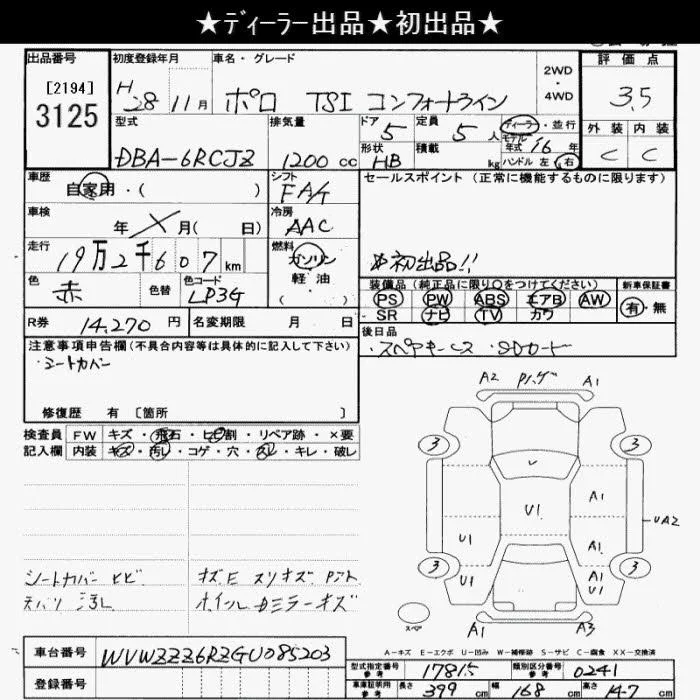 ★ディーラー出品★初出品★
出品番号
[2194]
3125
初度登録年月
H 28 11月
車名・グレード
ポロ TSI コンフォートライン
2WD
・
4WD
評価点
3.5
外装 内装
C C
型式
DBA-6RCJZ
排気量
1200 cc
ドア
5
定員
5人
形状
HB
積載
kg
ディーラー・並行
モデル年式 16年
ハンドル 左 右
車歴
自家用・( )
シフト
FA4
セールスポイント (正常に機能するものに限ります)
☆初出品!!
車検
年 月( 日)
冷房
AAC
走行
19万2千607km
燃料
ガソリン
軽・油
・( )
色
赤
色替
色コード
LP3G
装備品 (純正品に限り〇をつけてください)
PS PW ABS エアB AW
SR ナビ TV カワ
新車保証書
有・無
R券 14,270 円
名変期限 月 日
後日品
・スペアキーコス ・SDカード
注意事項申告欄(不具合内容等は具体的に記入して下さい)
・シートカバー
修復歴 有 [箇所 ]
検査員
記入欄
FW キズ・飛石・ヒビ割・リペア跡・×要
内装 キズ・汚レ・コゲ・穴・スレ・キレ・破レ
シートカバー ヒビ
天バリ 汚レ
キズE スリキズ
ホイール ミラーキズ
A2 A1
3 3
A1
U1
UA2
U1 A1
3 3
U1 A1
U1
スペア
A1 A3
A-キズ E-エクボ U-凹み W-補修跡 S-サビ C-腐食 XX-交換済
車台番号
WVWZZZ6RZGU085203
登録番号
型式指定番号
参考
17815
類別区分番号
参考
0241
車庫証明用
参考
長さ 399 cm 幅 168 cm 高さ 147 cm